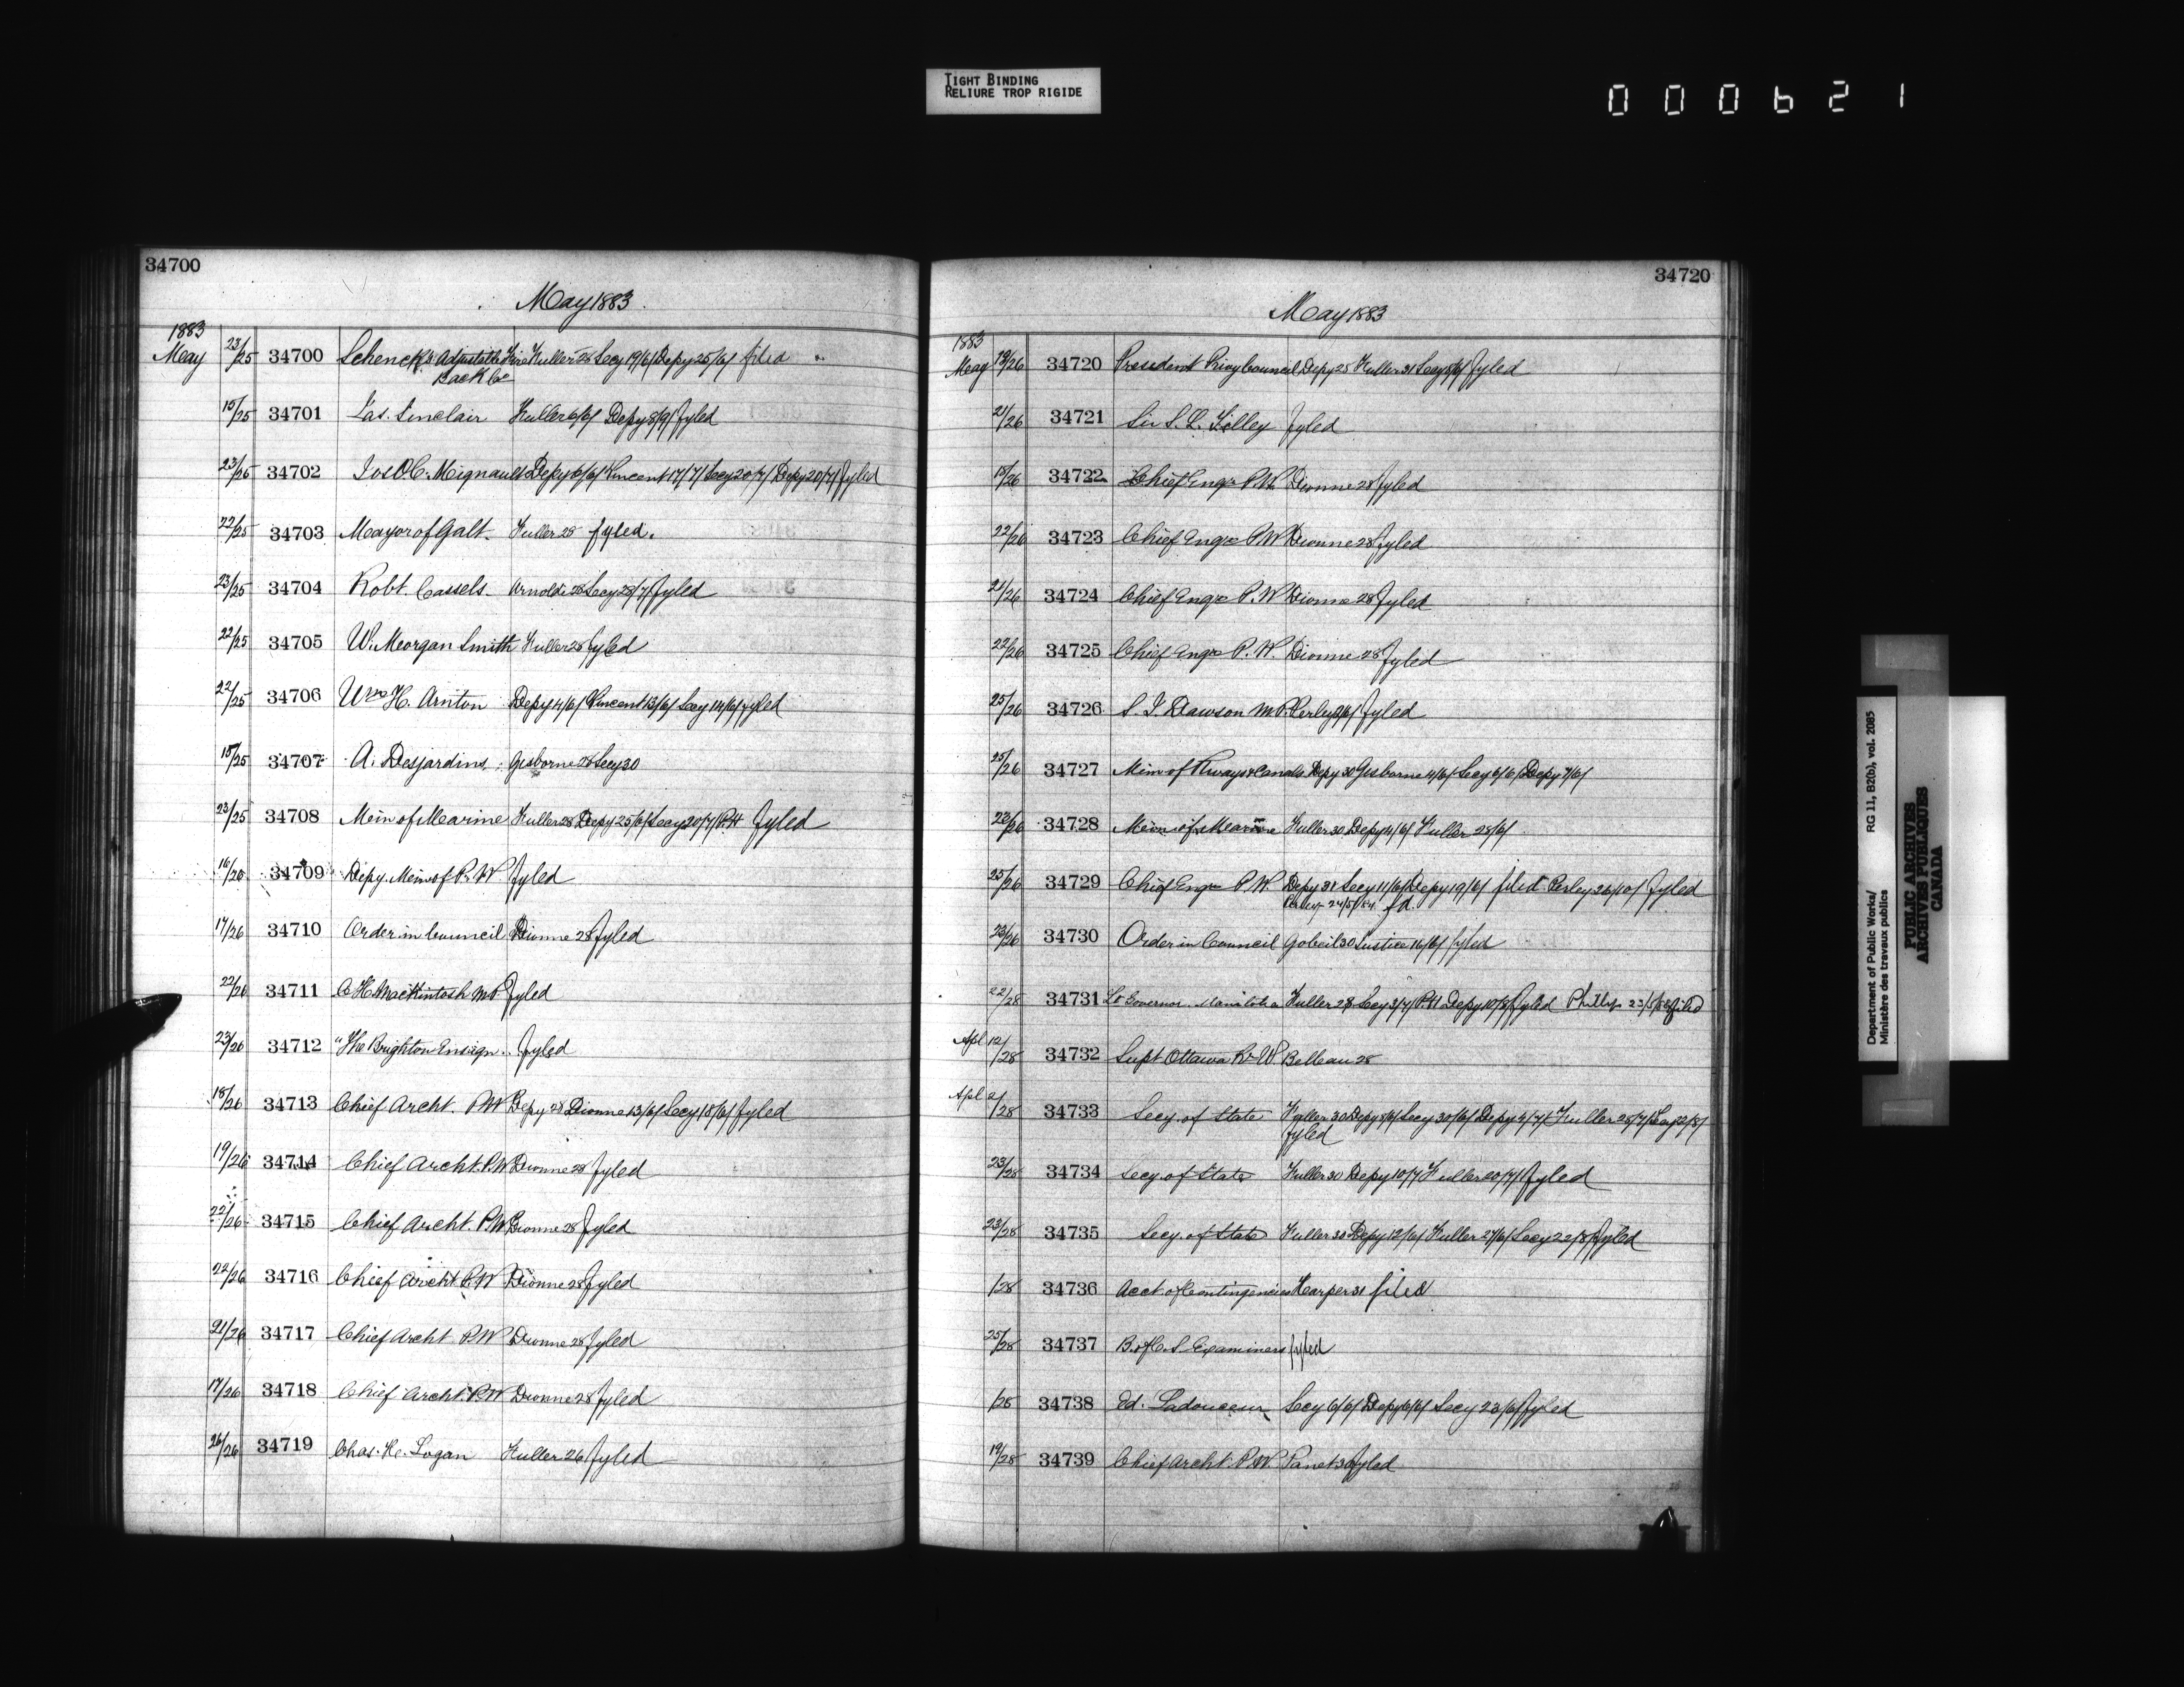 TIGHT BINDING
RELIURE TROP RIGIDE
000621
34700
May 1883
1883
May 23/25 34700 Schenck's Adjustable Fire Fuller 28 Secy 19/6/ Depy 25/6/ filed
Back Co
15/25 34701 Jas. Sinclair Fuller 6/6/ Depy 8/9/ fyled
23/25 34702 Jos O C. Mignault Depy 6/6/ Vincent 17/7/ Secy 20/7/ Depy 20/7/ fyled
22/25 34703 Mayor of Galt. Fuller 28 fyled.
23/25 34704 Robt. Cassels. Arnoldi 28 Secy 28/7/ fyled
22/25 34705 W. Morgan Smith Fuller 28 fyled
22/25 34706 Wm H. Arnton Depy 4/6/ Vincent 13/6/ Secy 14/6/ fyled
15/25 34707 A. Desjardins. Gisborne 28 Secy 30
23/25 34708 Min of Marine Fuller 28 Depy 25/6/ Secy 20/7/ P.H fyled
16/26 34709 Depy. Min of P. W. fyled
17/26 34710 Order in Council Dionne 28 fyled
22/26 34711 C H. Mackintosh MP fyled
23/26 34712 "The Brighton Ensign. fyled
18/26 34713 Chief Archt. P.W Depy 28 Dionne 13/6/ Secy 18/6/ fyled
19/26 34714 Chief Archt. P.W Dionne 28 fyled
22/26 34715 Chief Archt. P.W. Dionne 28 fyled
22/26 34716 Chief Archt P.W Dionne 28 fyled
21/26 34717 Chief Archt P.W Dionne 28 fyled
17/26 34718 Chief Archt. P.W Dionne 28 fyled
26/26 34719 Chas. H. Logan Fuller 26/ fyled
34720
May 1883
1883
May 19/26 34720 President Privy Council Depy 28 Fuller 31 Secy 8/6/ fyled
21/26 34721 Sir S. L. Tilley fyled
18/26 34722 Chief Engr P.W. Dionne 28 fyled
22/26 34723 Chief Engr P.W Dionne 28 fyled
21/26 34724 Chief Engr P.W Dionne 28 fyled
22/26 34725 Chief Engr P. W. Dionne 28 fyled
25/26 34726 S. J. Dawson M.P. Perley 9/6/ fyled
25/26 34727 Min of Rways & Canals Depy 30 Gisborne 4/6/ Secy 6/6/ Depy 7/6/
22/26 34728 Min of Marine Fuller 30 Depy 4/6/ Fuller 28/6/
25/26 34729 Chief Engr P.W. Depy 31 Secy 11/6/ Depy 19/6/ filed Perley 26/10/ fyled
Perley 24/5/84 fd.
23/26 34730 Order in Council Gobeil 30 Justice 16/6/ fyled
22/28 34731 Lt Governor Manitoba Fuller 28 Secy 3/7/ P.H Depy 10/8/ fyled Phillips 23/5/88 filed
Apl 12/28 34732 Supt Ottawa R. W. Belleau 28
Apl 2/28 34733 Secy. of State Fuller 30 Depy 8/6/ Secy 30/6/ Depy 4/7/ Fuller 28/7/ Secy 22/8/
fyled
23/28 34734 Secy. of State Fuller 30 Depy 10/7 Fuller 20/7/ fyled
23/28 34735 Secy. of State Fuller 30 Depy 12/6/ Fuller 27/6/ Secy 22/8/ fyled
/28 34736 Acct. of Contingencies Harper 31 filed
25/28 34737 B. of C. S. Examiners fyled
/28 34738 Ed. Ladouceur Secy 6/6/ Depy 6/6/ Secy 23/6/ fyled
19/28 34739 Chief Archt. P.W. Panet 30 fyled
Department of Public Works/ RG 11, B2(b), vol. 2085
Ministère des travaux publics
PUBLIC ARCHIVES
ARCHIVES PUBLIQUES
CANADA